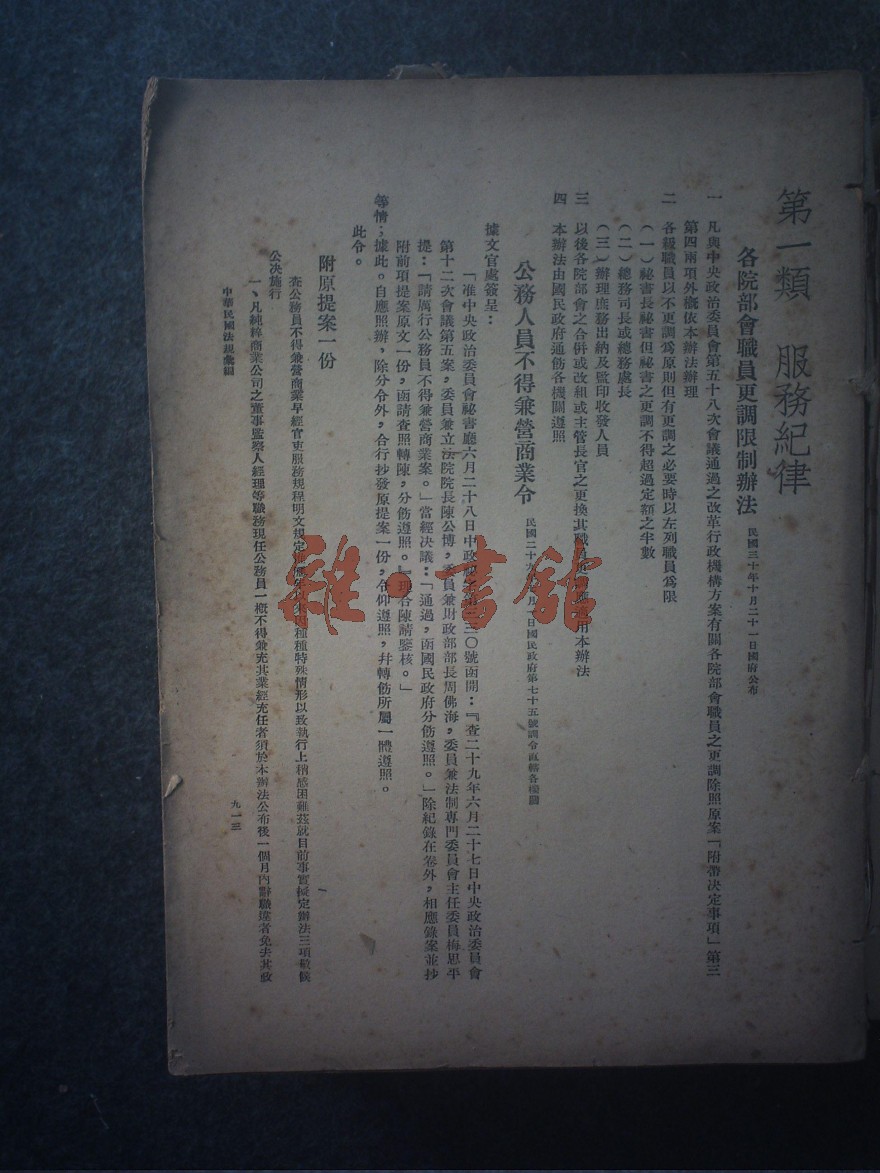 第一類　服務紀律
各院部會職員更調限制辦法　民國三十年十月二十一日國府公布
一　凡與中央政治委員會第五十八次會議通過之改革行政機構方案有關各院部會職員之更調除照原案「附帶決定事項」第三
第四兩項外概依本辦法辦理
二　各級職員以不更調為原則但有更調之必要時以左列職員為限
（一）祕書長祕書但祕書之更調不得超過定額之半數
（二）總務司長或總務處長
（三）辦理庶務出納及監印收發人員
三　以後各院部會之合併或改組或主管長官之更換其職員更調適用本辦法
四　本辦法由國民政府通飭各機關遵照
公務人員不得兼營商業令　民國二十九年月一日國民政府第七十五號訓令直轄各機關
據文官處簽呈：
「准中央政治委員會祕書廳六月二十八日中政祕字第三三〇號函開：『查二十九年六月二十七日中央政治委員會
第十二次會議第五案，委員兼立法院院長陳公博，委員兼財政部部長周佛海，委員兼法制專門委員會主任委員梅思平
提：「請厲行公務員不得兼營商業案。」當經決議：「通過，函國民政府分飭遵照。」除紀錄在卷外，相應錄案並抄
附前項提案原文一份，函請查照轉陳，分飭遵照。』理合陳請鑒核。」
等情；據此。自應照辦，除分令外，合行抄發原提案一份，令仰遵照，并轉飭所屬一體遵照。
此令。
附原提案一份
查公務員不得兼營商業早經官吏服務規程明文規定惟年以來因種種特殊情形以致執行上稍感困難茲就目前事實擬定辦法三項敬候
公決施行
一、凡純粹商業公司之董事監察人經理等職務現任公務員一概不得兼充其業經充任者須於本辦法公布後一個月內辭職違者免去其政
中華民國法規彙編
九一三
雜·書館